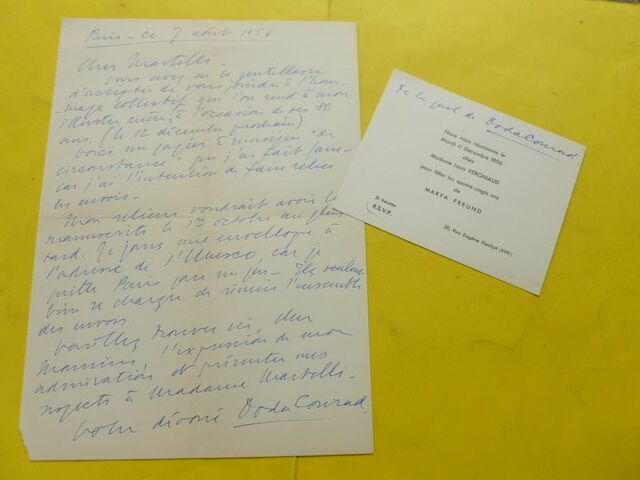 Paris - ce 7 août 1956
Cher Martelli -
vous avez eu la gentillesse
d'accepter de vous joindre à l'hom-
mage collectif que l'on rend à mon
illustre mère, à l'occasion de ses 80
ans. (le 12 décembre prochain)
Voici un papier à musique "de
circonstance" que j'ai fait faire
car j'ai l'intention de faire relier
les envois.
Mon relieur voudrait avoir les
manuscrits le 1er octobre au plus
tard. Je joins une enveloppe à
l'adresse de l'Unesco, car je
quitte Paris pour un peu - Ils veulent
bien se charger de réunir l'ensemble
des envois
Veuillez trouver ici, cher
Monsieur, l'expression de mon
admiration et présenter mes
respects à Madame Martelli -
Votre dévoué Doda Conrad.
De la part de Doda Conrad.
Nous nous réunissons le
Mardi 11 Décembre 1956
chez
Madame Louis VERGNIAUD
pour fêter les quatre-vingts ans
de
MARYA FREUND
21 heures
R.S.V.P.
20, Rue Eugène Flachat (XVIIe)